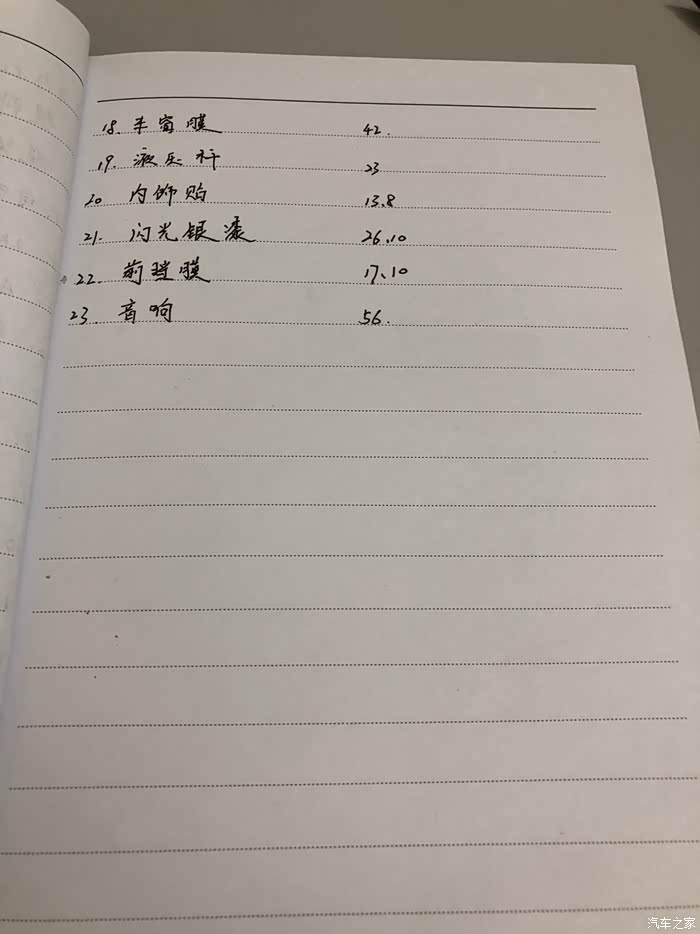 18. 车窗膜 42.
19. 液压杆 23
20 内饰贴 13.8
21. 闪光银漆 26.10
22. 前挡膜 17.10
23. 音响 56.
汽车之家